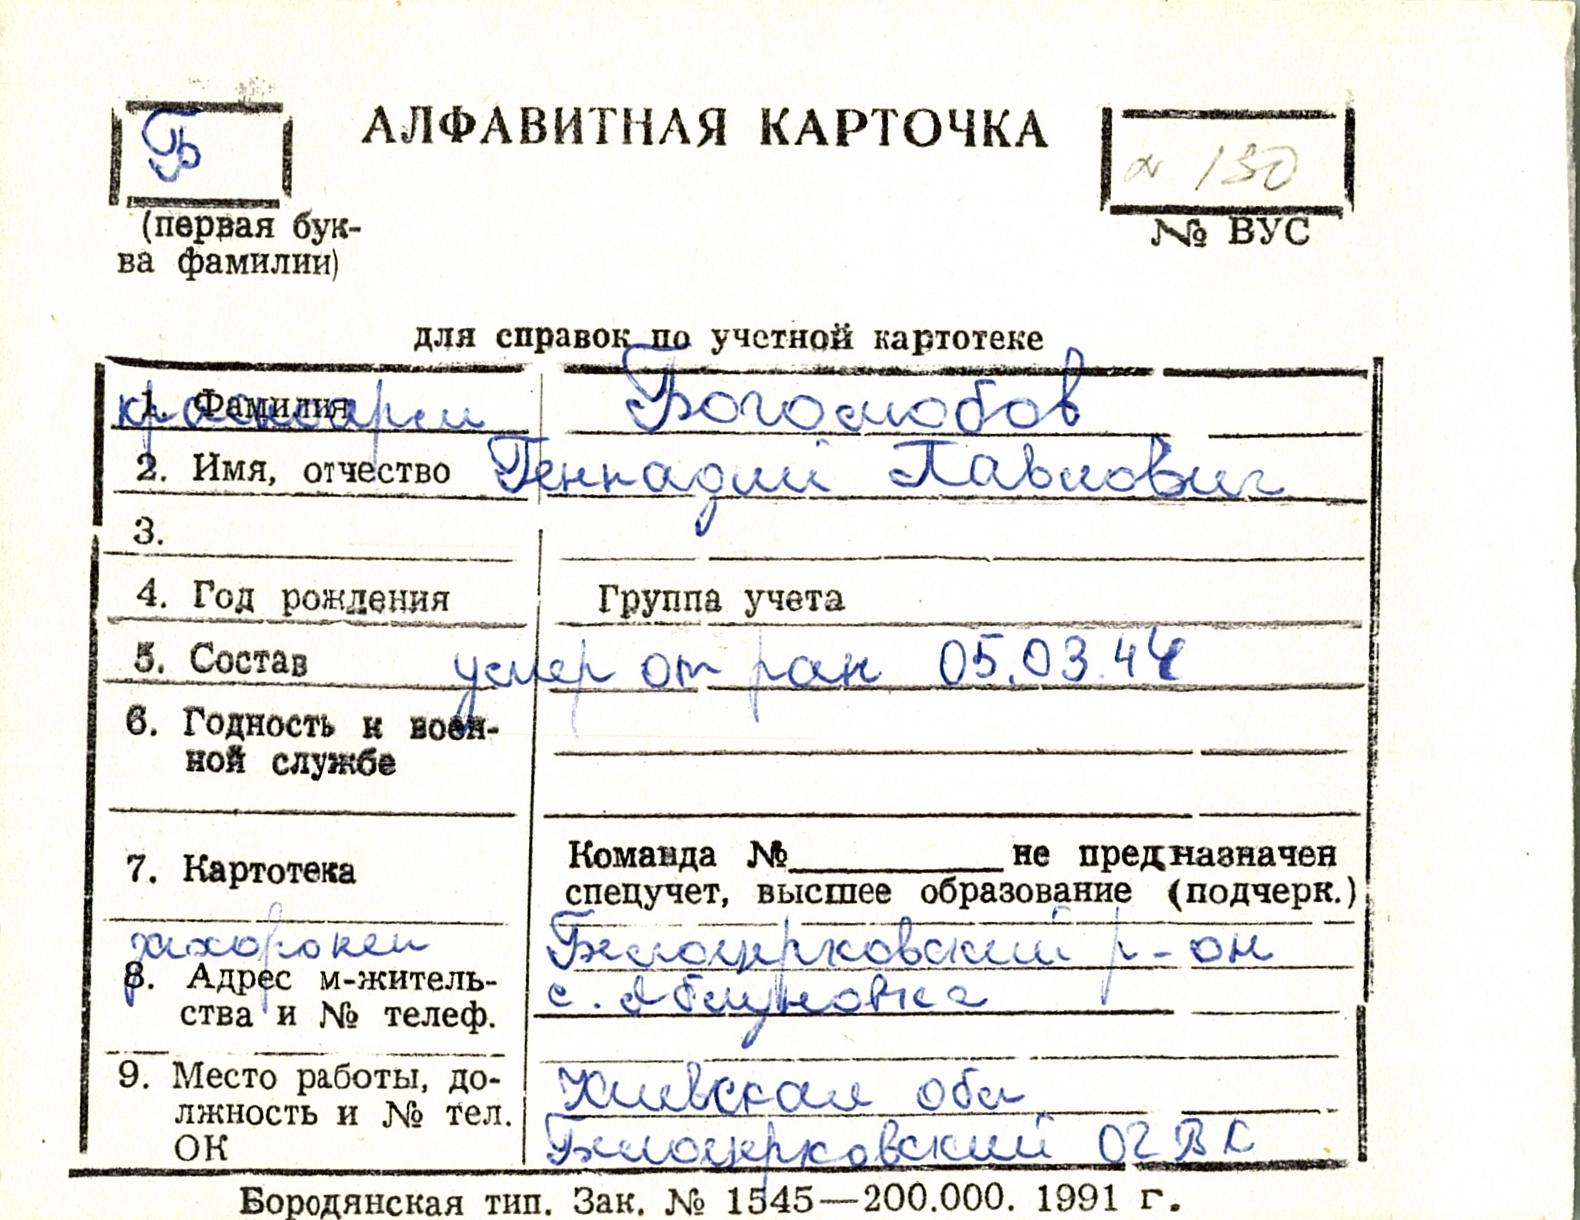 Б
АЛФАВИТНАЯ КАРТОЧКА
№ 130
(первая бук-
ва фамилии)
№ ВУС
для справок по учетной картотеке
1. Фамилия
красноарм
Боголюбов
2. Имя, отчество Геннадий Павлович
3.
4. Год рождения Группа учета
5. Состав умер от ран 05.03.44
6. Годность к воен-
ной службе
7. Картотека
Команда № не предназначен
спецучет, высшее образование (подчерк.)
захоронен Белоцерковский р-он
8. Адрес м-житель-
ства и № телеф.
с. Яблуновка
9. Место работы, до-
лжность и № тел.
ОК
Киевская обл
Белоцерковский ОГВК
Бородянская тип. Зак. № 1545—200.000. 1991 г.